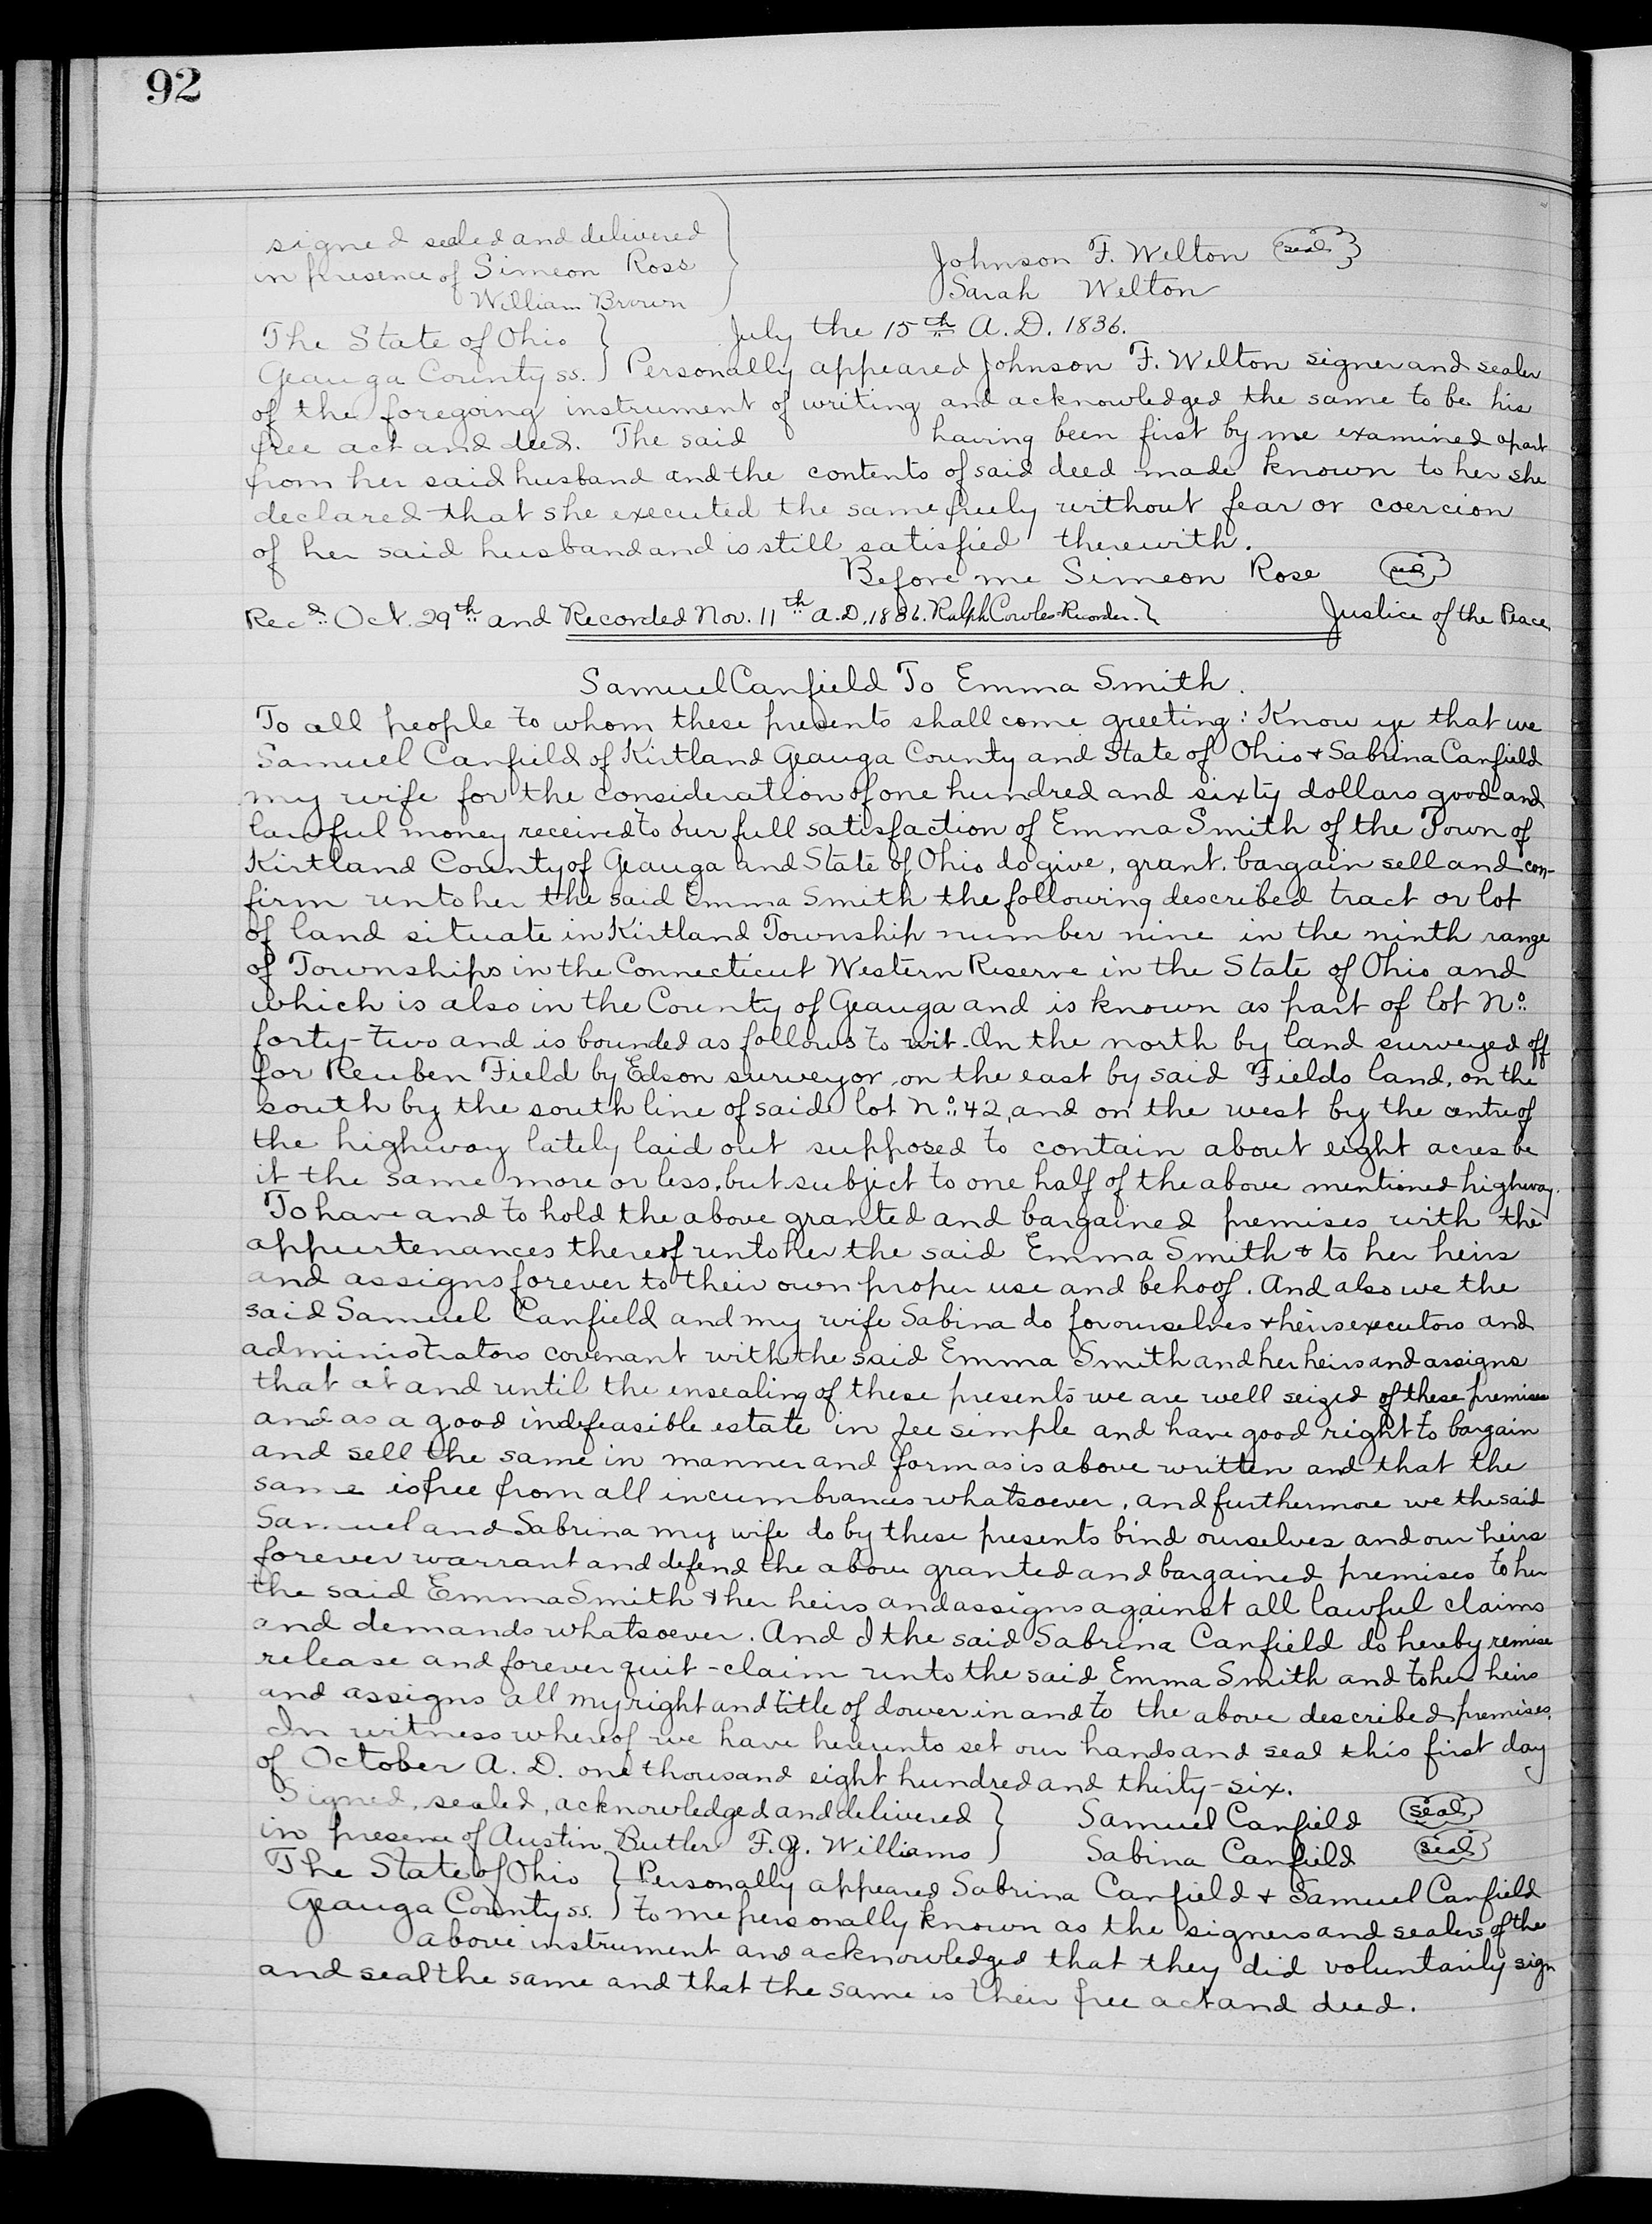 92
signed sealed and delivered
in presence of Simeon Ross
William Brown
Johnson F. Welton (seal)
Sarah Welton
The State of Ohio } July the 15th A.D. 1836.
Geauga County ss. } Personally appeared Johnson F. Welton signer and sealer
of the foregoing instrument of writing and acknowledged the same to be his
free act and deed. The said having been first by me examined apart
from her said husband and the contents of said deed made known to her she
declared that she executed the same freely without fear or coercion
of her said husband and is still satisfied therewith.
Before me Simeon Rose (seal)
Recd. Oct. 29th and Recorded Nov. 11th A.D. 1836. Ralph Cowles Recorder. } Justice of the Peace
Samuel Canfield To Emma Smith.
To all people to whom these presents shall come greeting: Know ye that we
Samuel Canfield of Kirtland Geauga County and State of Ohio & Sabrina Canfield
my wife for the consideration of one hundred and sixty dollars good and
lawful money received to our full satisfaction of Emma Smith of the Town of
Kirtland County of Geauga and State of Ohio do give, grant, bargain sell and con-
firm unto her the said Emma Smith the following described tract or lot
of land situate in Kirtland Township number nine in the ninth range
of Townships in the Connecticut Western Reserve in the State of Ohio and
which is also in the County of Geauga and is known as part of lot No.
forty-two and is bounded as follows to wit. On the north by land surveyed off
for Reuben Field by Edson surveyor, on the east by said Fields land, on the
south by the south line of said lot No. 42, and on the west by the centre of
the highway lately laid out supposed to contain about eight acres be
it the same more or less, but subject to one half of the above mentioned highway.
To have and to hold the above granted and bargained premises with the
appurtenances thereof unto her the said Emma Smith & to her heirs
and assigns forever to their own proper use and behoof. And also we the
said Samuel Canfield and my wife Sabina do for ourselves & heirs executors and
administrators covenant with the said Emma Smith and her heirs and assigns
that at and until the ensealing of these presents we are well seized of these premises
and as a good indefeasible estate in fee simple and have good right to bargain
and sell the same in manner and form as is above written and that the
same is free from all incumbrances whatsoever, and furthermore we the said
Samuel and Sabrina my wife do by these presents bind ourselves and our heirs
forever warrant and defend the above granted and bargained premises to her
the said Emma Smith & her heirs and assigns against all lawful claims
and demands whatsoever. And I the said Sabrina Canfield do hereby remise
release and forever quit-claim unto the said Emma Smith and to her heirs
and assigns all my right and title of dower in and to the above described premises.
In witness whereof we have hereunto set our hands and seal this first day
of October A. D. one thousand eight hundred and thirty-six.
Signed, sealed, acknowledged and delivered } Samuel Canfield (seal)
in presence of Austin Butler F. G. Williams } Sabina Canfield (seal)
The State of Ohio } Personally appeared Sabrina Canfield & Samuel Canfield
Geauga County ss. } to me personally known as the signers and sealers of the
above instrument and acknowledged that they did voluntarily sign
and seal the same and that the same is their free act and deed.